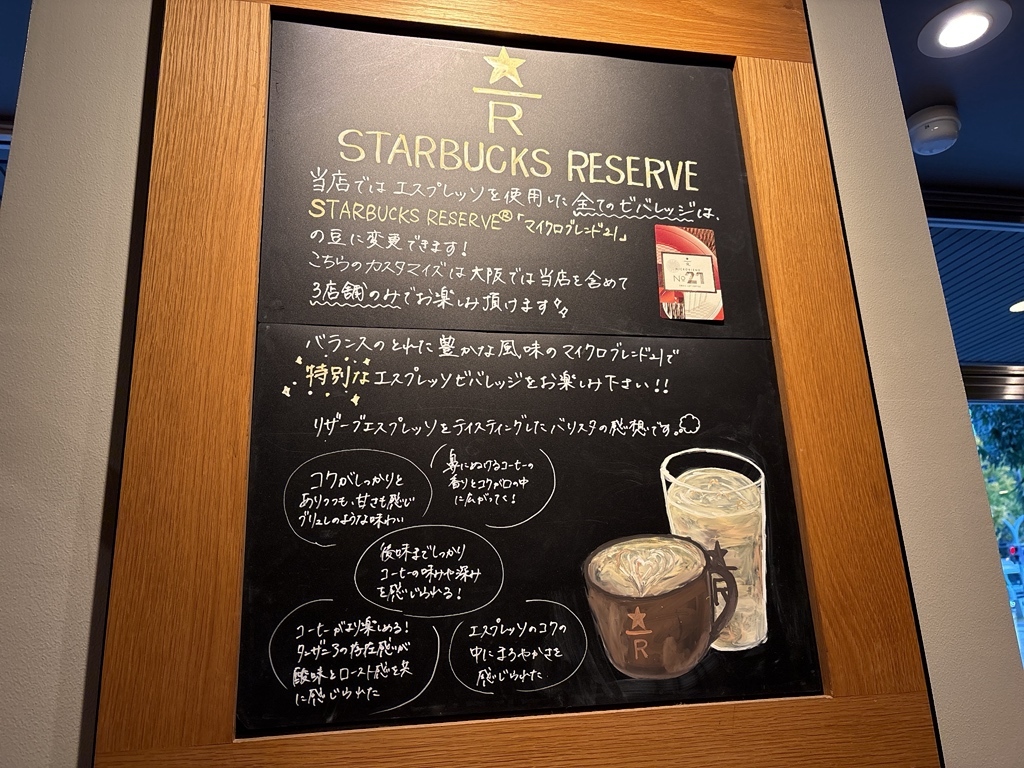 R
STARBUCKS RESERVE
当店では エスプレッソを使用した 全てのビバレッジは、
STARBUCKS RESERVE®「マイクロブレンド21」
の豆に変更できます!
こちらのカスタマイズは大阪では当店を含めて
3店舗のみでお楽しみ頂けます
R
No21
バランスのとれた豊かな風味のマイクロブレンド21で
特別なエスプレッソビバレッジをお楽しみ下さい!!
リザーブエスプレッソをテイスティングしたバリスタの感想です。
コクがしっかりと
ありつつも、甘さも感じ
ブリュレのような味わい
鼻にぬけるコーヒーの
香りとコクが口の中
に広がってく!
後味までしっかり
コーヒーの味みや深み
を感じられる!
コーヒーがより楽しめる!
タンザニアの存在感が
酸味とロースト感を共
に感じられた
エスプレッソのコクの
中にまろやかさを
感じられた
R
R